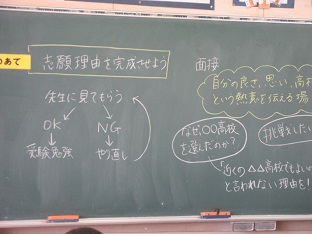 めあて
志願理由を完成させよう
先生に見てもらう
OK
NG
受験勉強
やり直し
面接
自分の良さ、思い、高校
という熱意を伝える場
なぜ、〇〇高校
を選んだのか?
挑戦したい
「近くの△△高校でもよい
と言われない理由を!